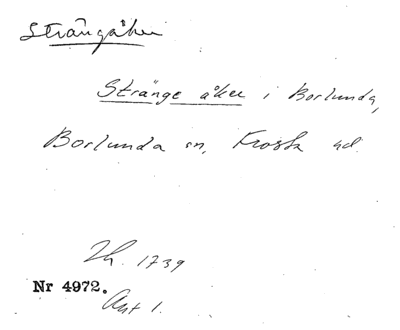 Strängåker
Stränge åker i Borlunda,
Borlunda sn, Frosta hd.
Lh. 1739
Nr 4972.
Akt 1.